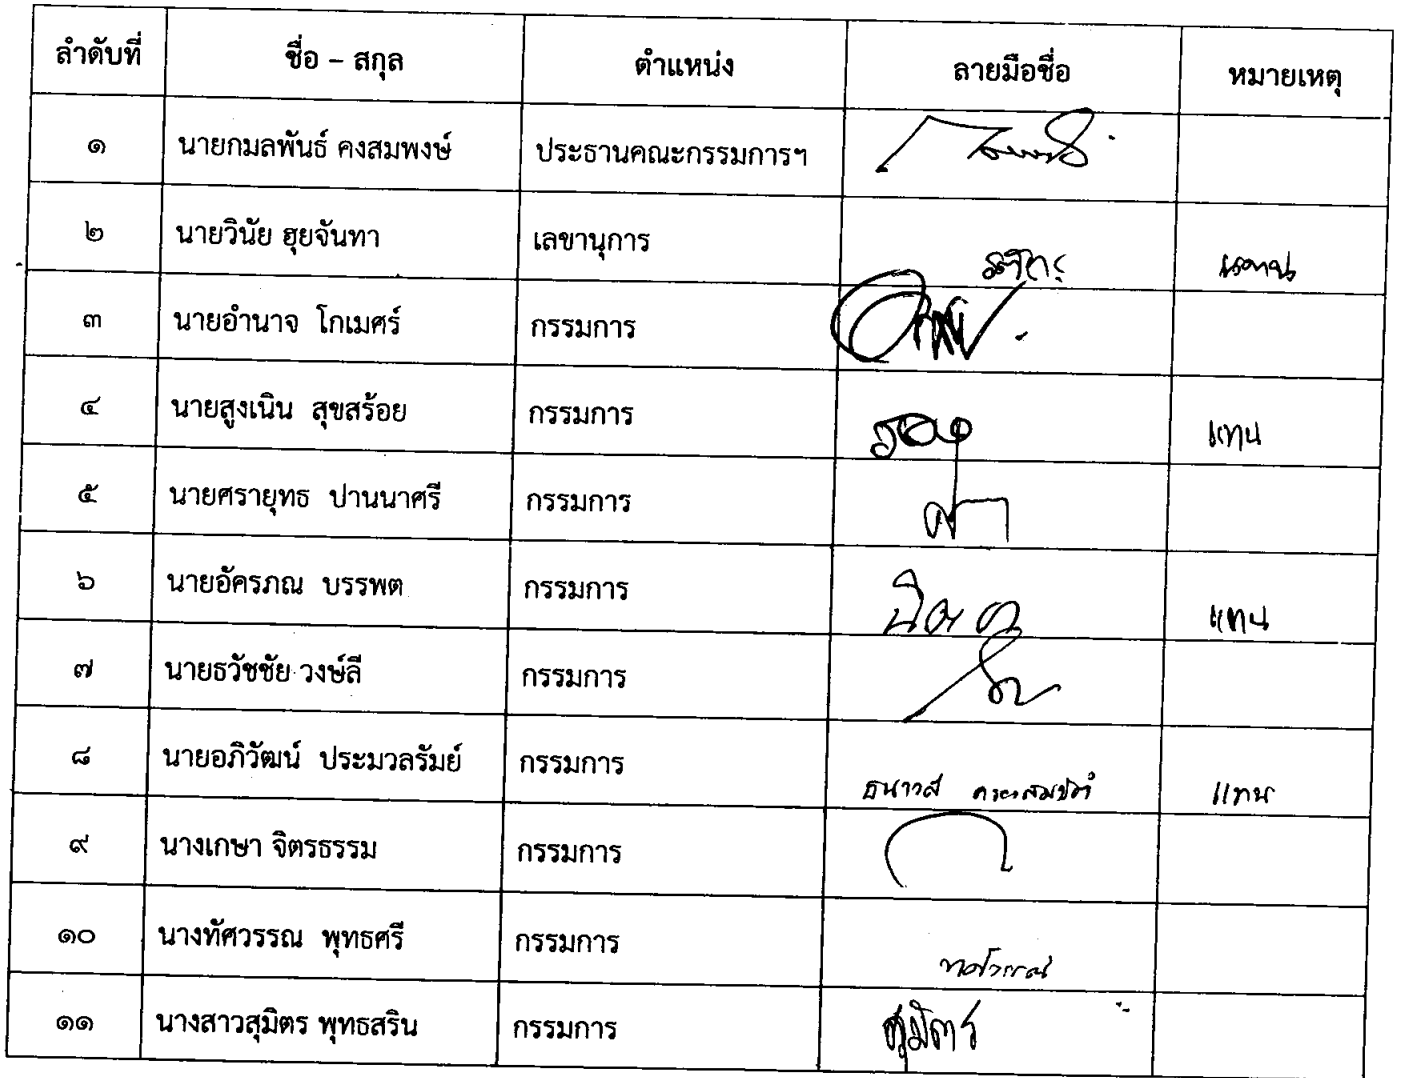 ลำดับที่ ชื่อ – สกุล ตำแหน่ง ลายมือชื่อ หมายเหตุ
๑ นายกมลพันธ์ คงสมพงษ์ ประธานคณะกรรมการฯ
๒ นายวินัย ฮุยจันทา เลขานุการ แทน
๓ นายอำนาจ โกเมศร์ กรรมการ
๔ นายสูงเนิน สุขสร้อย กรรมการ แทน
๕ นายศรายุทธ ปานนาศรี กรรมการ
๖ นายอัครภณ บรรพต กรรมการ แทน
๗ นายธวัชชัย วงษ์ลี กรรมการ
๘ นายอภิวัฒน์ ประมวลรัมย์ กรรมการ แทน
๙ นางเกษา จิตรธรรม กรรมการ
๑๐ นางทัศวรรณ พุทธศรี กรรมการ ทัศวรรณ
๑๑ นางสาวสุมิตร พุทธสริน กรรมการ สุมิตร